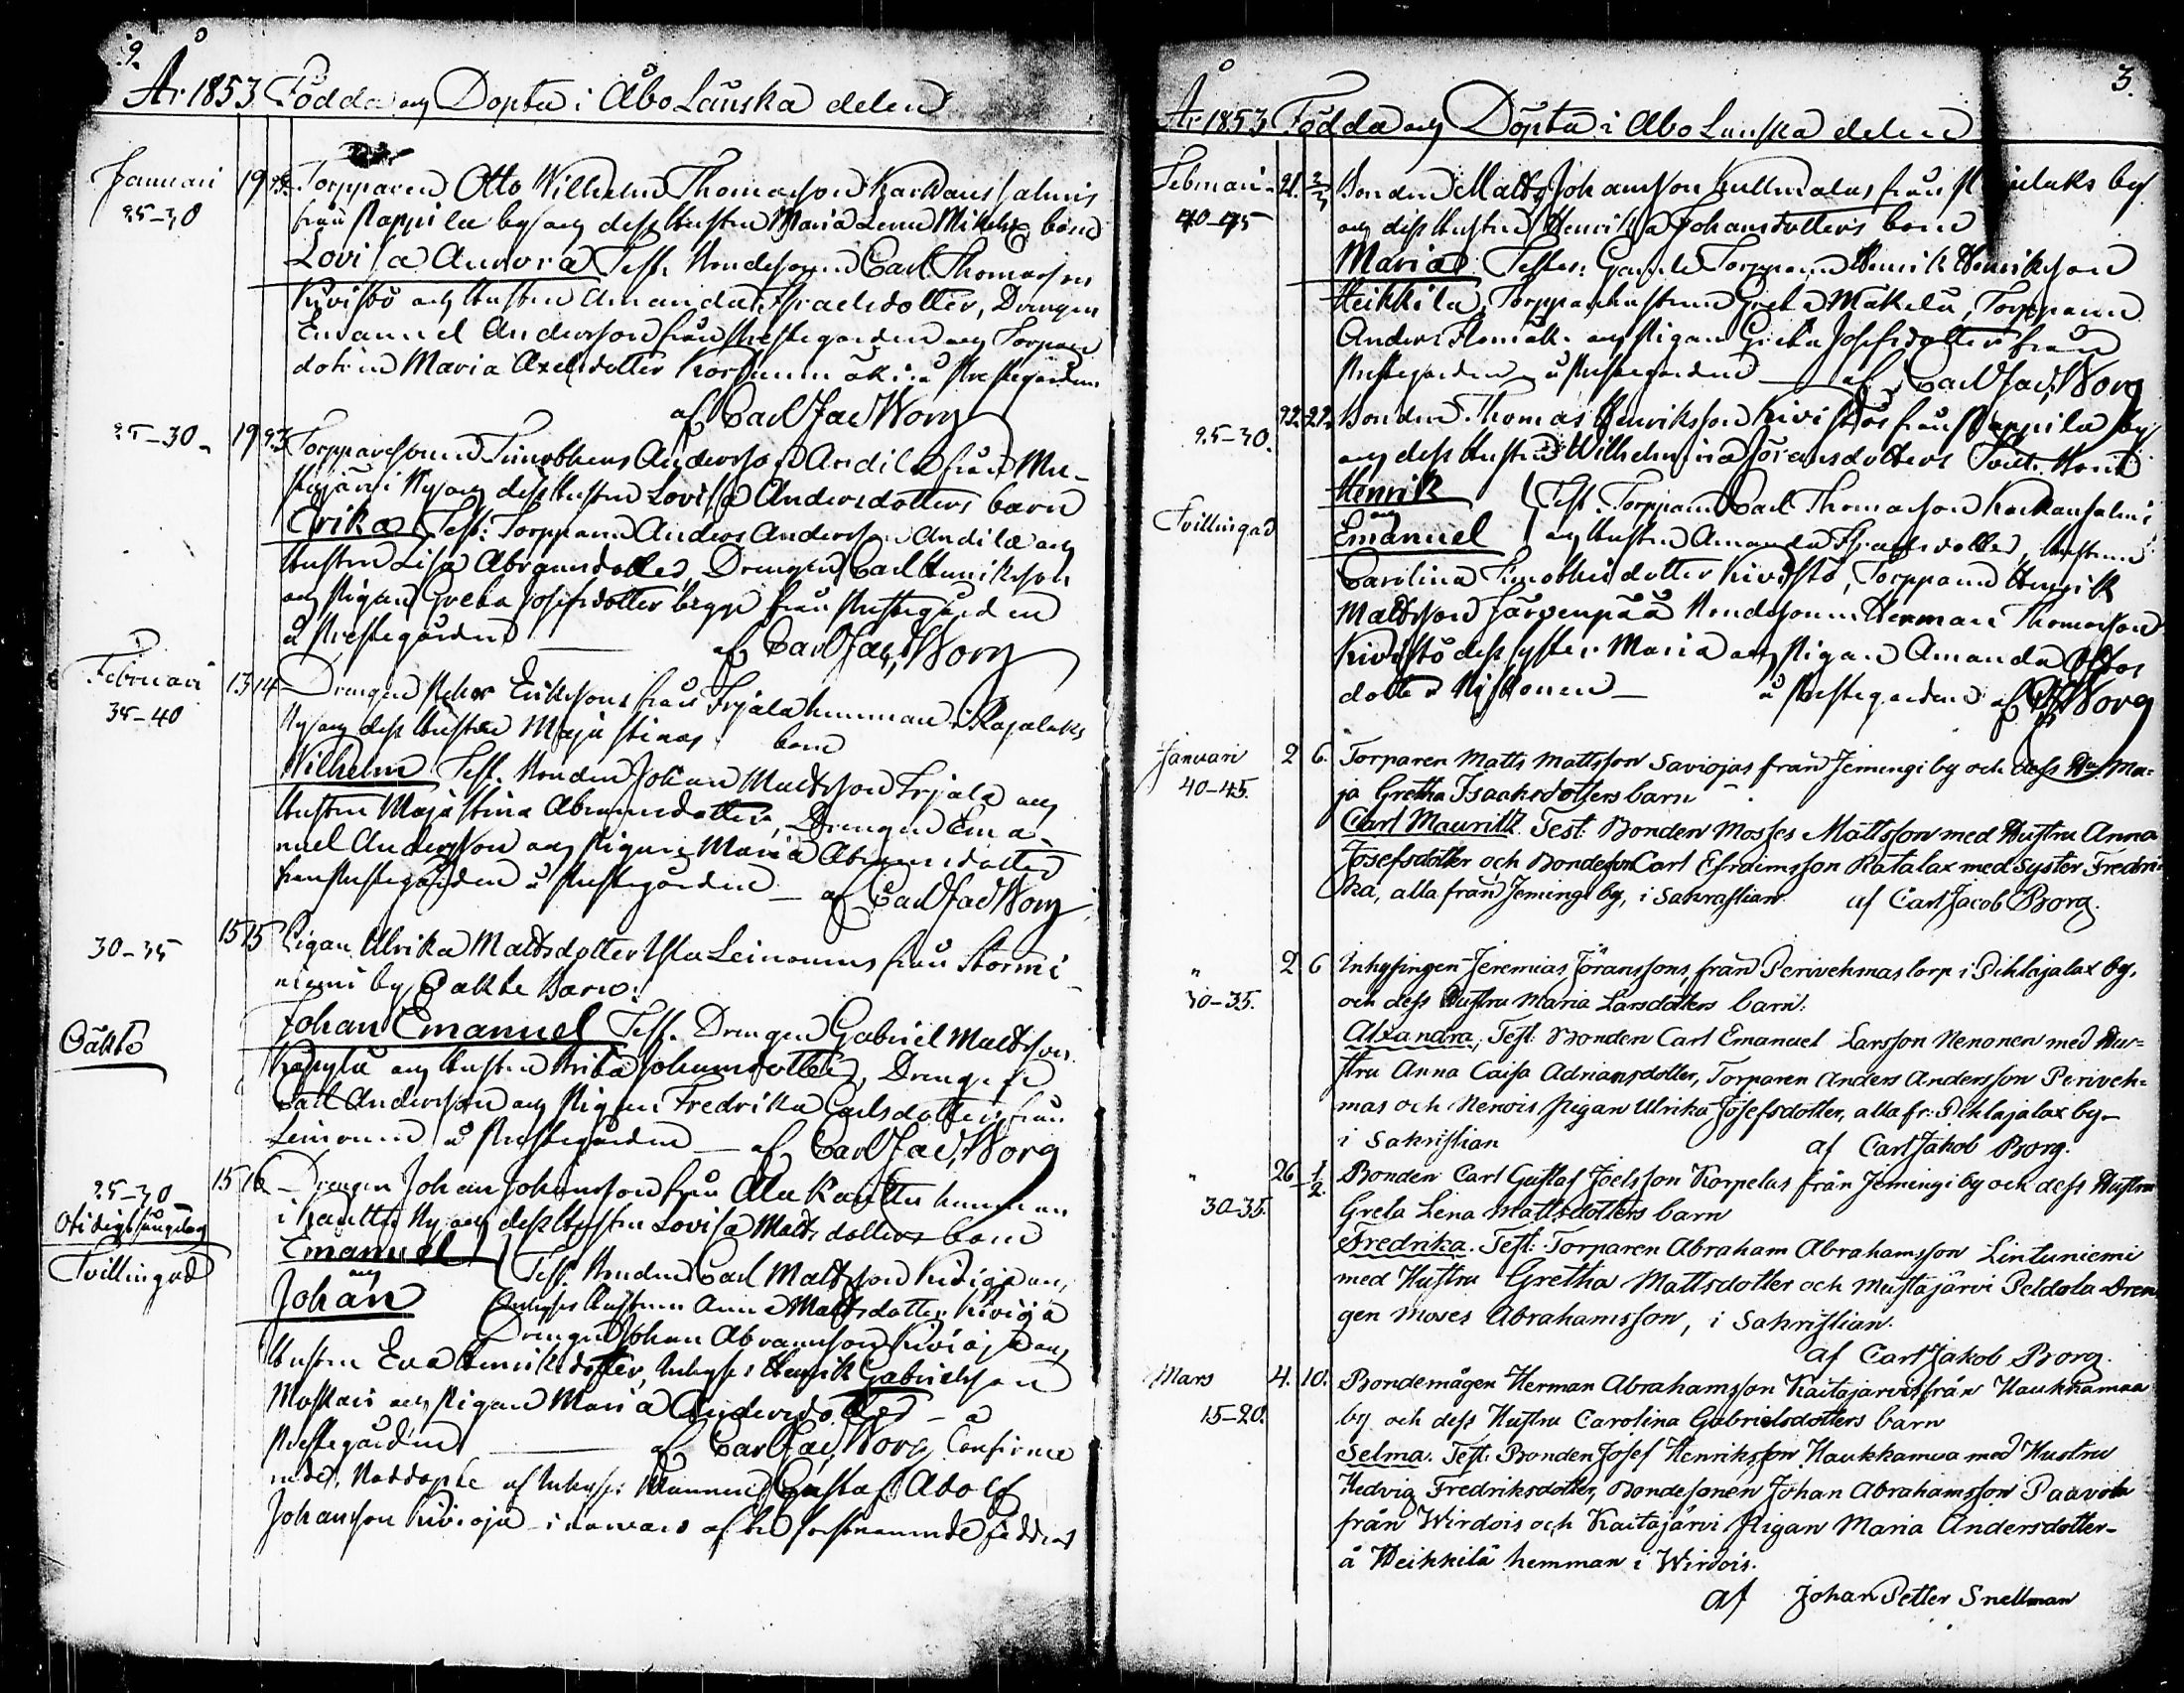 2.
År 1853 Födda och Döpta i Åbo Länska delen
Januari 19 23. Torpparen Otto Wilhelm Thomasson Karkaus salmis
25-30 från Pappila by och dess hustru Maria Lena barn
Lovisa Aurora Test. Bondesonen Carl Thomasson
Kivistö och hustrun Amanda Israelsdotter, Drengen
Emanuel Andersson från Prestegården och Torpare
dottren Maria Axelsdotter å Prestegården
af Carl Jac Borg
25-30 19 23 Torpparesonen Timotheus Andersson Andila från Mu-
stajärvi by och dess hustru Lovisa Andersdotters barn
Erika Test: Torpparen Anders Andersson Andila och
hustrun Lisa Abramsdotter, Drengen Carl Henriksson
och Pigan Greta Josefsdotter begge från Prestegården
å Prestegården af Carl Jac, Borg
Februari 13 14 Drengen Erikssons från Frjala hemman i
35-40 by och dess hustru Maja Stinas barn
Wilhelm Test. Bonden Johan Mattsson Frjala och
hustrun Maja Stina Abramsdotter, Drengen Ema-
nuel Andersson och Pigan Maria Abramsdotter
från Prestegården å Prestegården af Carl Jac Borg
30-35 15 15 Pigan Ulrika Mattsdotter Leinonens från Stormi-
niemi by Oäkta Barn:
Oäkta Johan Emanuel Test. Drengen Gabriel Mattsson
och hustrun Johansdotter, Drengen
Carl Andersson och Pigan Fredrika Carlsdotter från
Leinonen å Prestegården af Carl Jac, Borg
25-30 15 16 Drengen Johan Johansson från Ala Kauttu hemman
i Kauttu by och dess hustru Lovisa Mattsdotters barn
Emanuel
Tvillingar och Test. Bonden Carl Mattsson Kivioja
Johan Inhyses hustrun Anna Mattsdotter Kivioja
Drengen Johan Abramsson Kivioja och
hustrun Eva Henriksdotter, Inhyses Henrik Gabrielsson
och Pigan Maria Andersdotter å
Prestegården af Carl Jac, Borg Confirme-
rades, Nöddöpte af Inhyses Mannen Gustaf Adolf
Johansson Kivioja i närvaro af

3.
År 1853 Födda och Döpta i Åbo Länska delen
Februari 21. Bonden Matts Johansson från by
40-45 och dess hustru Henrika Johansdotters barn
Maria Testes: Torpparen Henrik Henriksson
Heikkilä, Torpparehustrun Greta Mäkelä, Torpparen
Anders och Pigan Greta Josefsdotter från
Prestegården å Prestegården af Carl Jac, Borg
25-30. 22. 27. Bonden Thomas Henriksson Kivistös från Pappila by
och dess hustru Wilhelmina Göransdotters barn
Henrik Test. Torpparen Carl Thomasson Karkausalmi
Tvillingar och
Emanuel och hustrun Amanda Israelsdotter, hustrun
Carolina Timotheidotter Kivistö, Torpparen Henrik
Mattsson Järvenpää Bondesonen Herman Thomasson
Kivistö dess syster Maria och Pigan Amanda
dotter å Prestegården af CJ Borg
Januari 2 6. Torparen Matts Mattsson Saviojas från Jemingi by och dess Hu Ma=
40-45. ja Gretha Isaaksdotters barn
Carl Mauritz. Test: Bonden Mosses Mattsson med Hustru Anna
Josefsdotter och Bondeson Carl Efraimsson Ratalax med syster Fredri-
ka, alla från Jemingi by, i Sakrastian. af Carl Jacob Borg.
" 2 6 Inhysingen Jeremias Göranssons, från Perivehmas torp i Pihlajalax by,
30-35. och dess Hustru Maria Larsdotters barn:
Alxandra, Test: Bonden Carl Emanuel Larsson Nenonen med Hu=
stru Anna Caisa Adriansdotter, Torparen Anders Andersson Periveh=
mas och Nenois Pigan Ulrika Josefsdotter, alla fr: Pihlajalax by-
i Sakristian af Carl Jakob Borg.
" 26 1/2. Bonden Carl Gustaf Joelsson Korpelas från Jemingi by och dess Hustru
30-35. Greta Lena Mattsdotters barn
Fredrika. Test: Torparen Abraham Abrahamsson Lintuniemi
med Hustru Gretha Mattsdotter och Mustajärvi Peldola Dren
gen Moses Abrahamsson, i Sakristian.
af Carl Jakob Borg.
Mars 4. 10. Bondemågen Herman Abrahamsson Kaitajarvis från Haukkamaa
15-20. by och dess Hustru Carolina Gabrielsdotters barn
Selma. Test: Bonden Josef Henriksson Haukkamaa med Hustru
Hedvig Fredriksdotter, Bondesonen Johan Abrahamsson Paavola
från Wirdois och Kaitajärvi Pigan Maria Andersdotter-
å Heikkilä hemman i Wirdois.
af Johan Petter Snellman